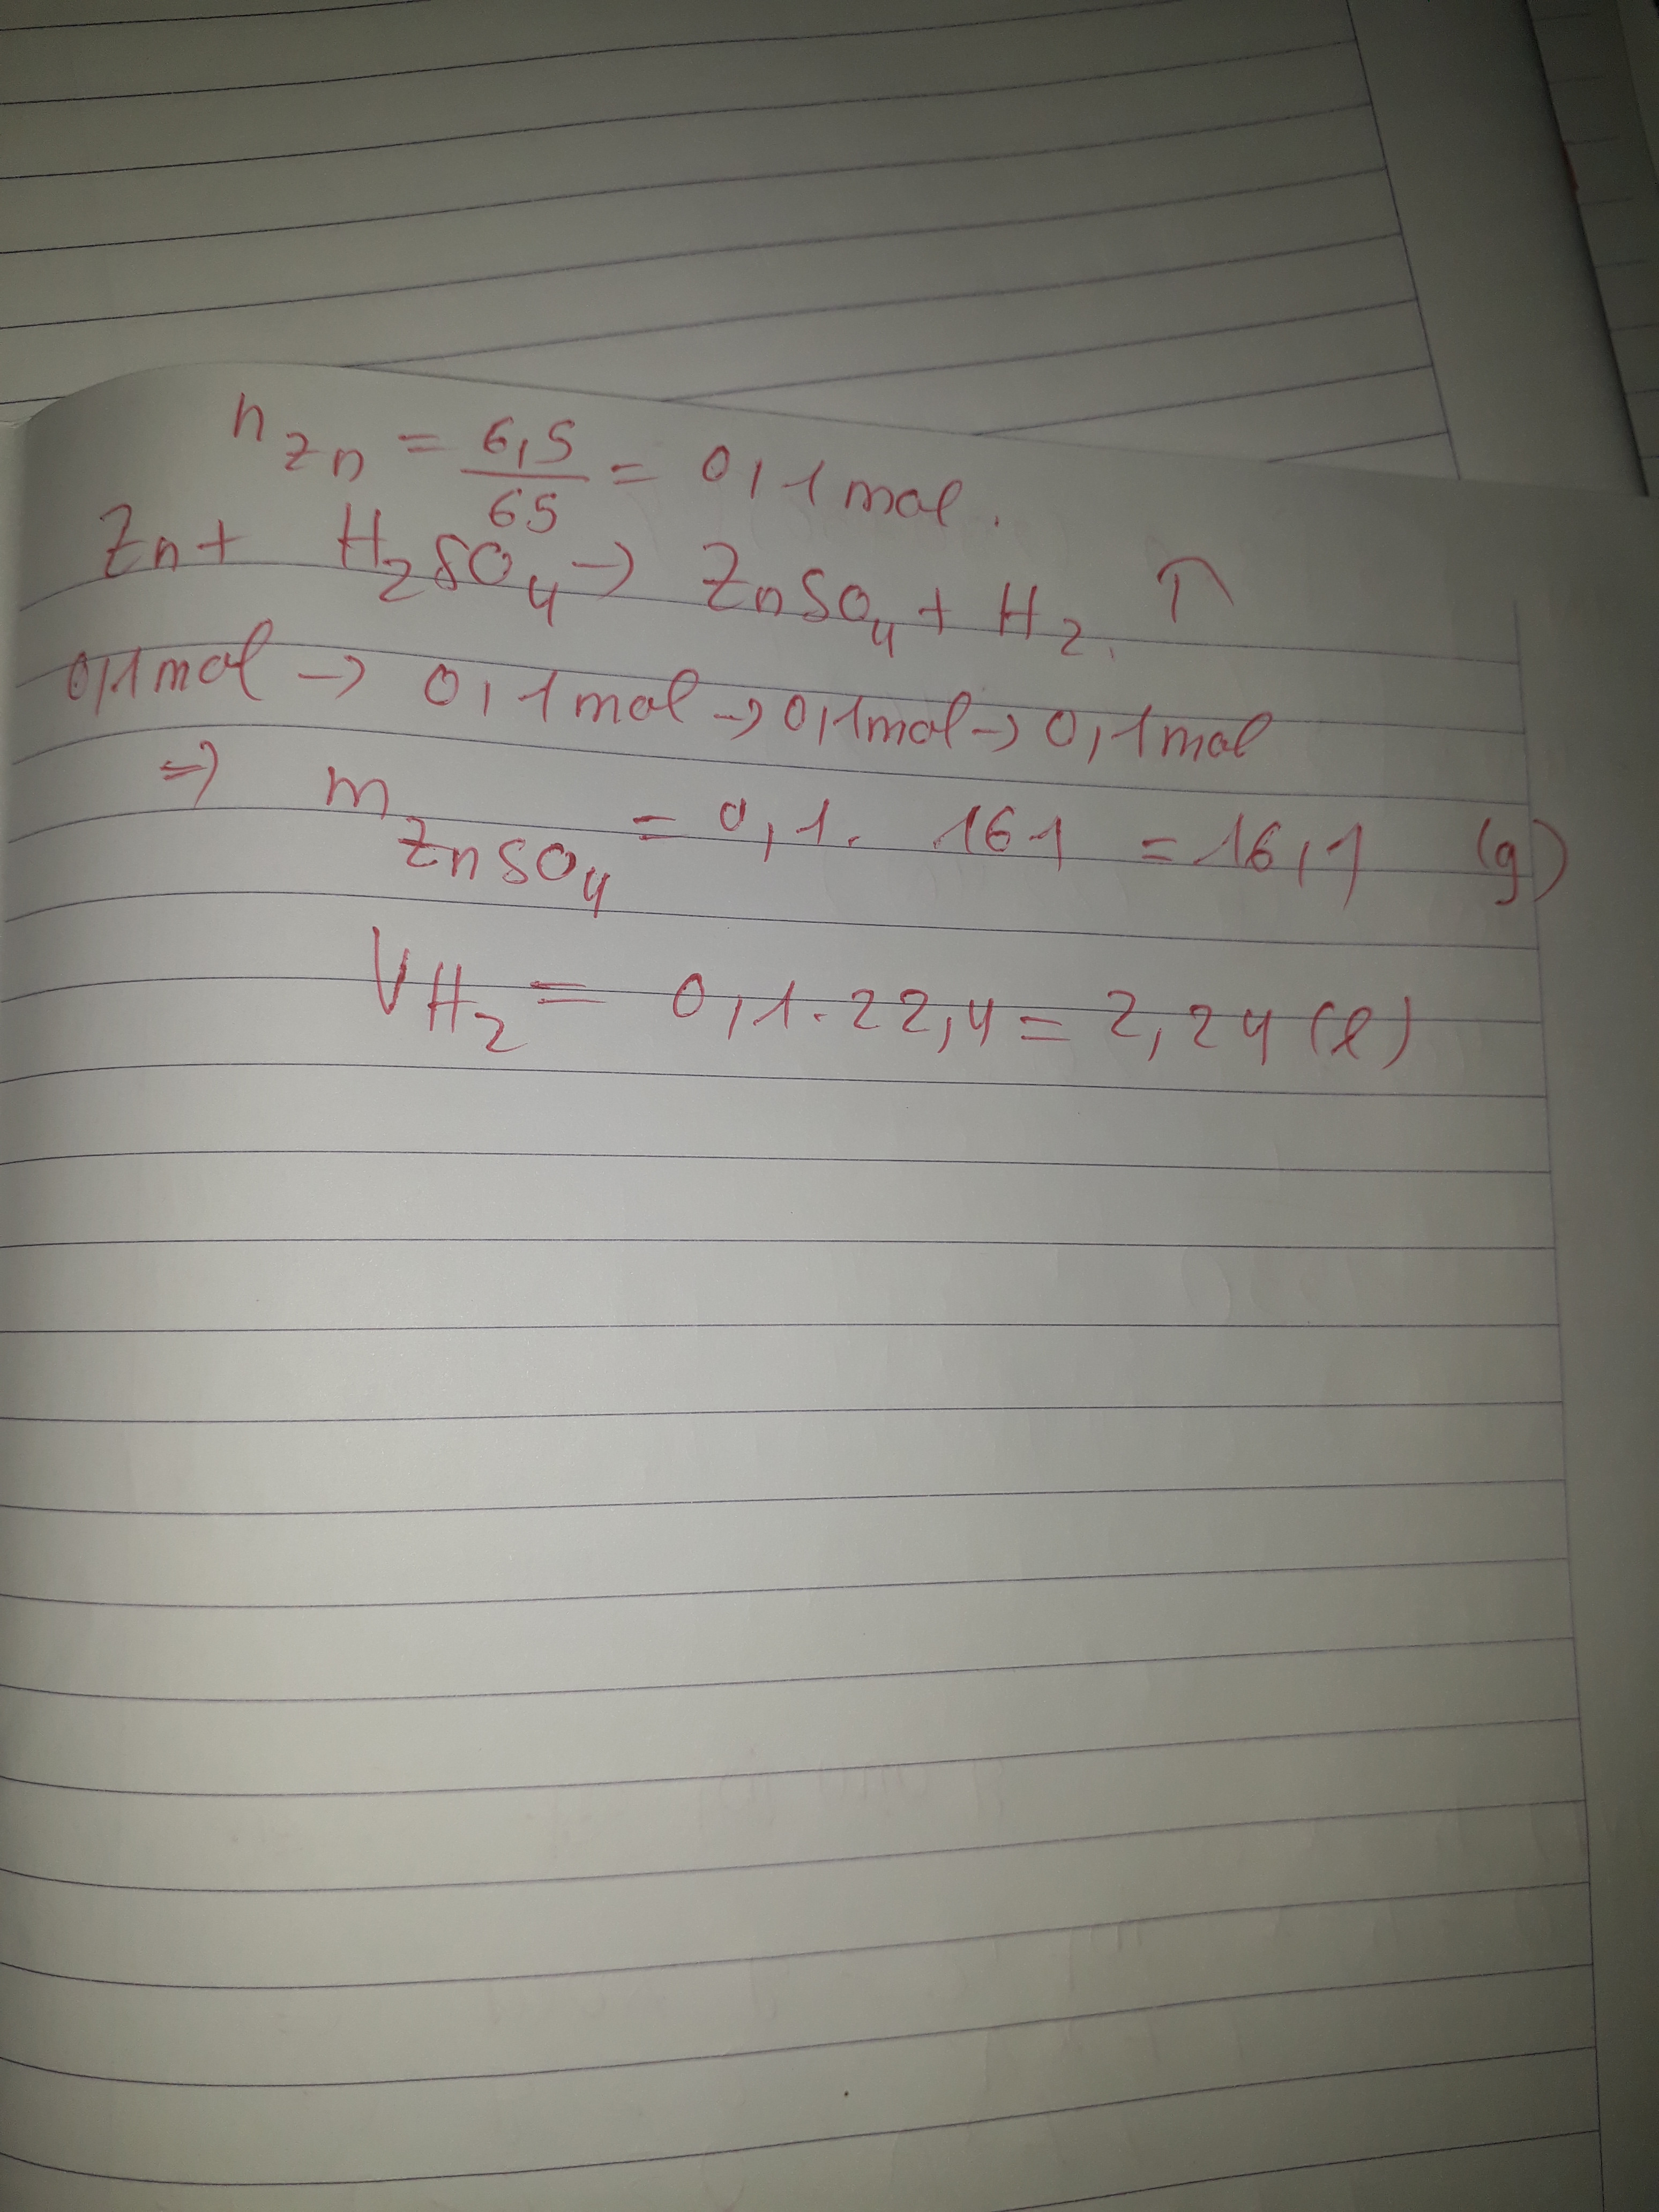 n Zn = 6,5/65 = 0,1 mol.
Zn + H₂SO₄ → ZnSO₄ + H₂. ↑
0,1 mol → 0,1 mol → 0,1 mol → 0,1 mol
⇒ m ZnSO₄ = 0,1. 161 = 16,1 (g)
V H₂ = 0,1.22,4 = 2,24 (l)